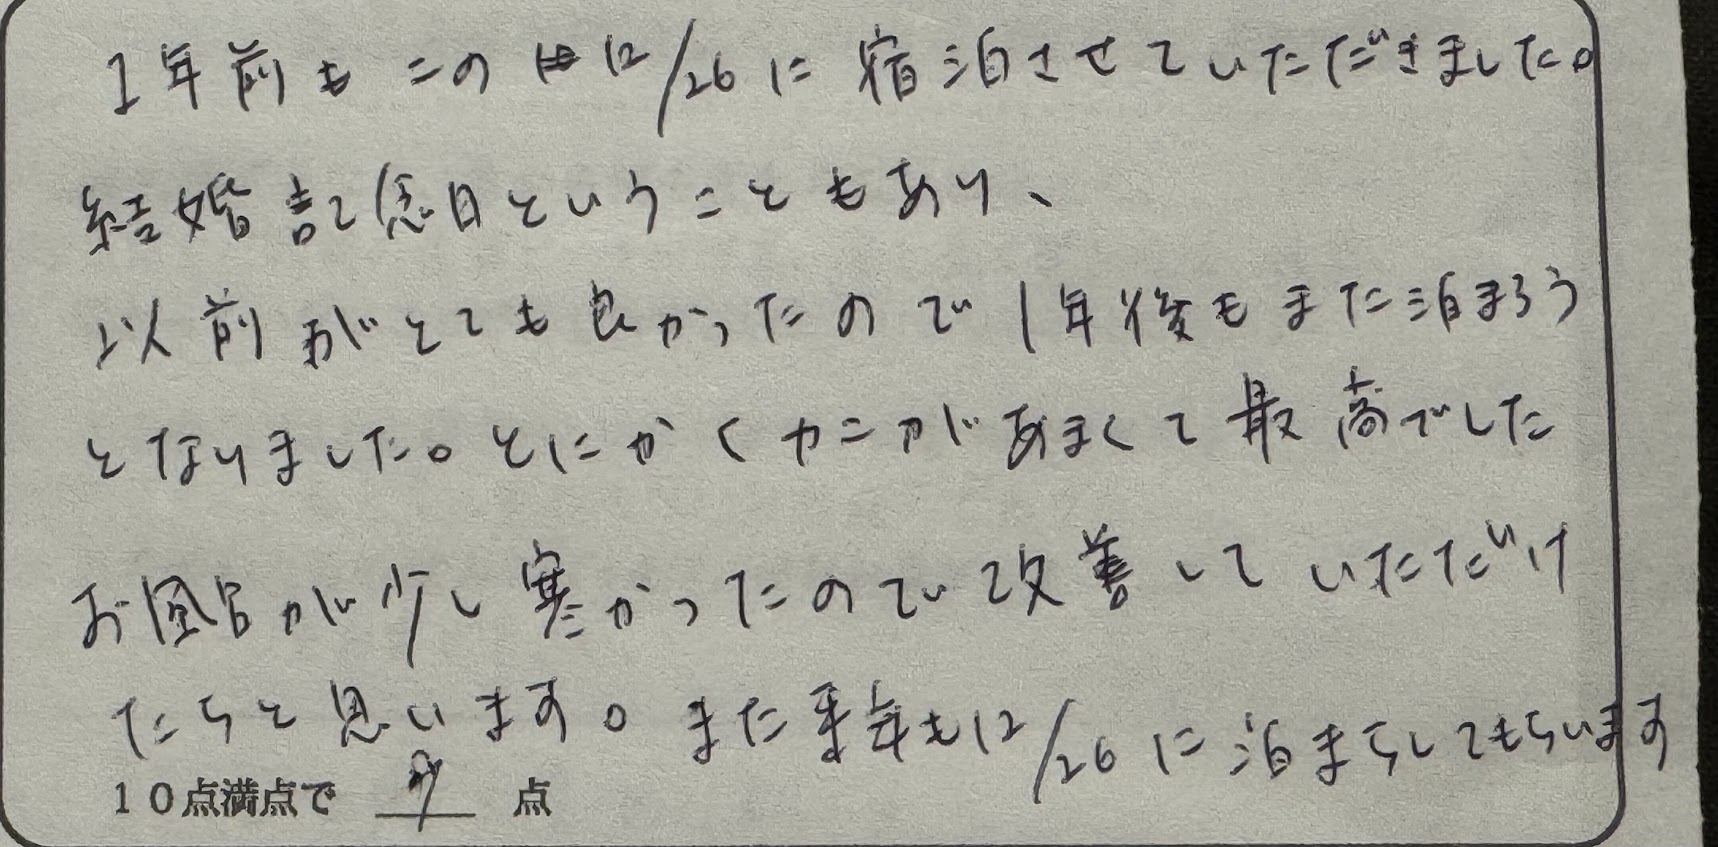 1年前もこの12/26に宿泊させていただきました。
結婚記念日ということもあり、
以前がとても良かったので1年後もまた泊まろう
となりました。とにかくカニがあまくて最高でした
お風呂が少し寒かったので改善していただけ
たらと思います。また来年も12/26に泊まらしてもらいます
10点満点で 9 点